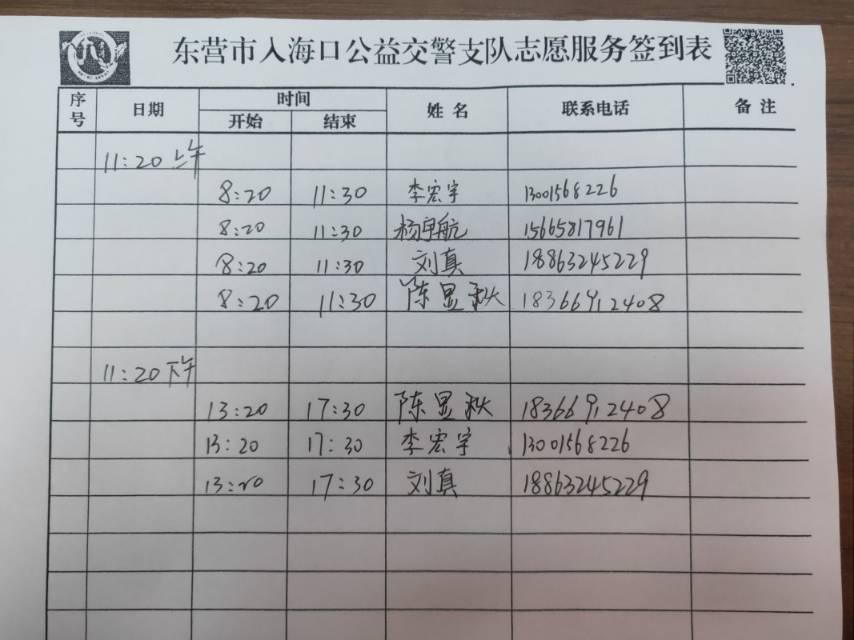 东营市入海口公益交警支队志愿服务签到表
序号 日期 时间 姓名 联系电话 备注
开始 结束
11:20上午
8:20 11:30 李宏宇 13001568226
8:20 11:30 杨宇航 15665817961
8:20 11:30 刘真 18863245229
8:20 11:30 陈显秋 18366912408
11:20下午
13:20 17:30 陈显秋 18366912408
13:20 17:30 李宏宇 13001568226
13:20 17:30 刘真 18863245229